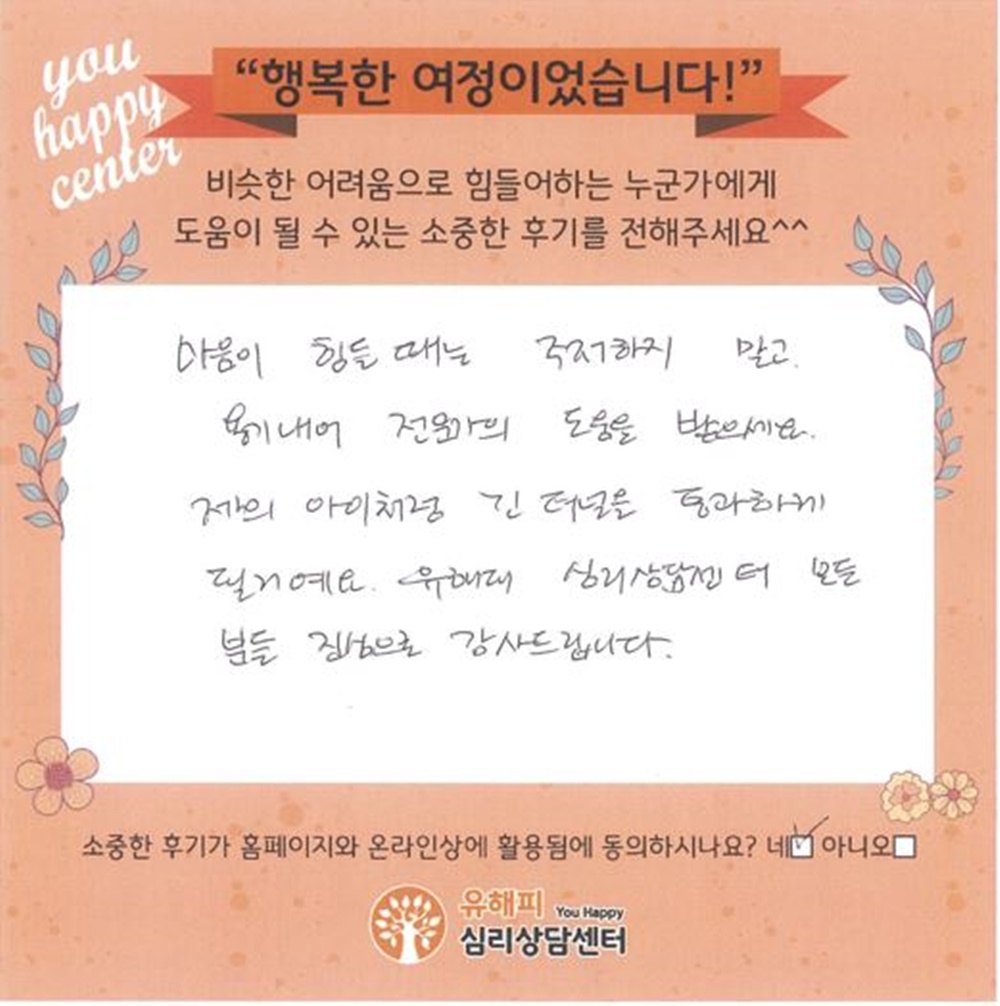 you
happy
center
“행복한 여정이었습니다!”
비슷한 어려움으로 힘들어하는 누군가에게
도움이 될 수 있는 소중한 후기를 전해주세요^^
마음이 힘들 때는 주저하지 말고.
용기내어 전문가의 도움을 받으세요.
저의 아이처럼 긴 터널을 통과하게
될거예요. 유해피 심리상담센터 모든
분들 진심으로 감사드립니다.
소중한 후기가 홈페이지와 온라인상에 활용됨에 동의하시나요? 네 아니오
유해피 You Happy
심리상담센터